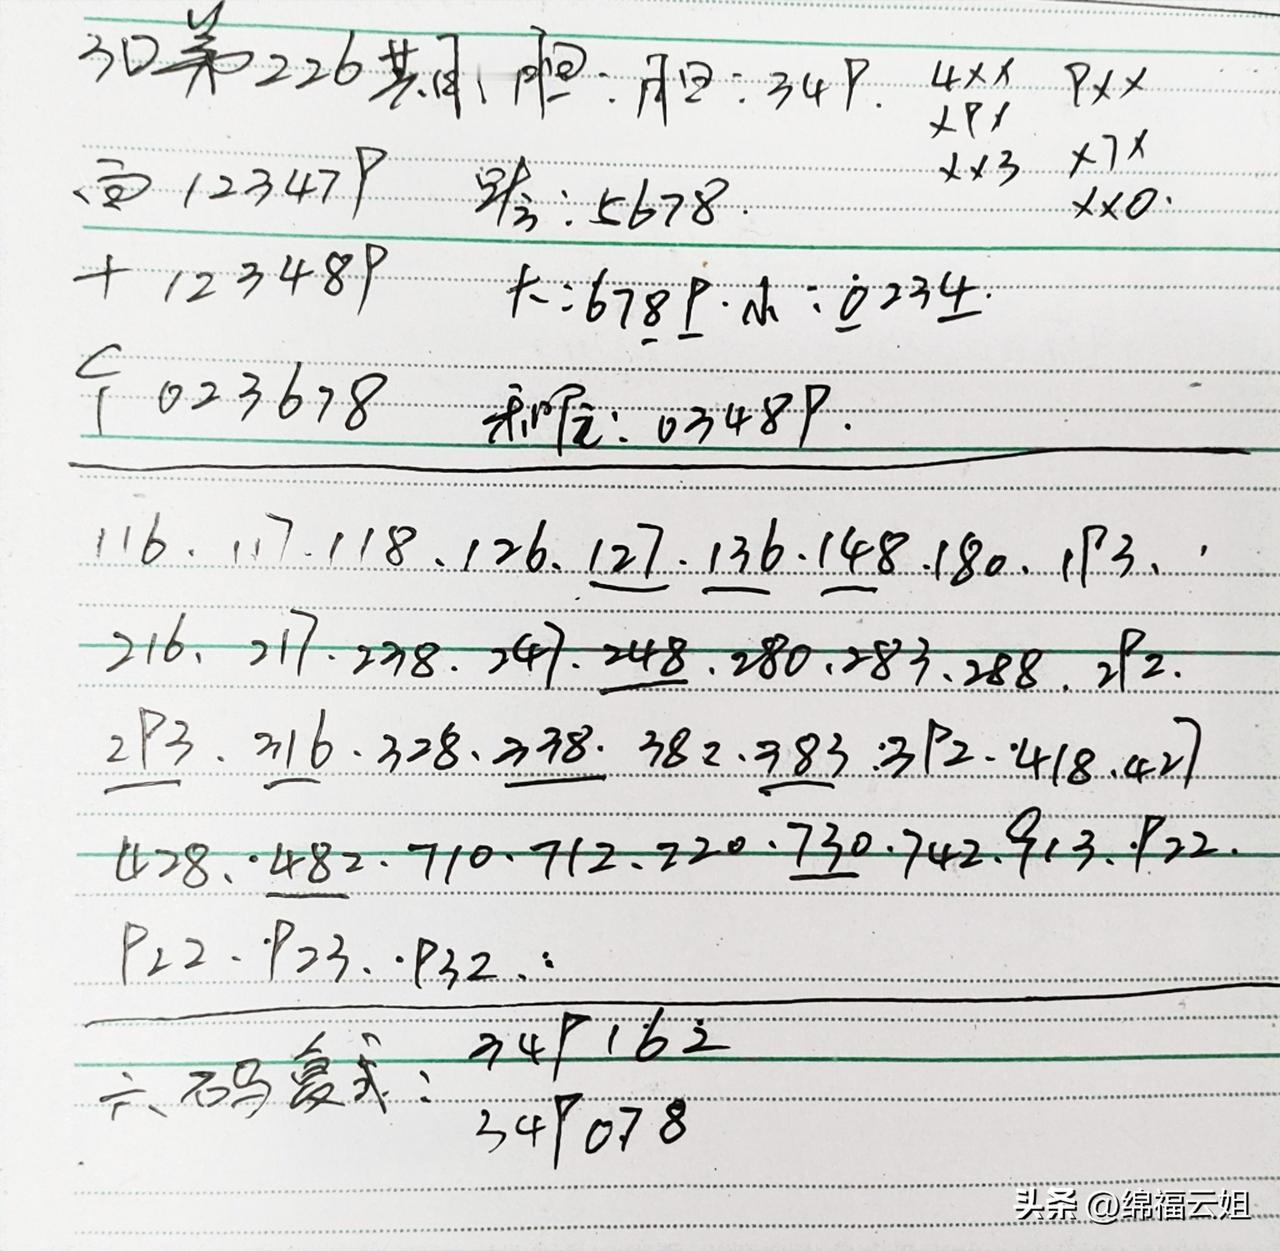 3D第226共期、胆:胆:34P. 4×× P××
×P× ×7×
××3 ××0.
百 12347P 跨:5678.
十 12348P 大:678P.小:0234.
个 023678 和尾:0348P.
116.117.118.126.127.136.148.180.1P3.
216.217.238.247.248.280.283.288.2P2.
2P3.316.328.338.382.383.3P2.418.427
428.482.710.712.720.730.742.913.P22.
P22.P23.P32.
六码复式: 34P162
34P078
头条 @绵福云姐